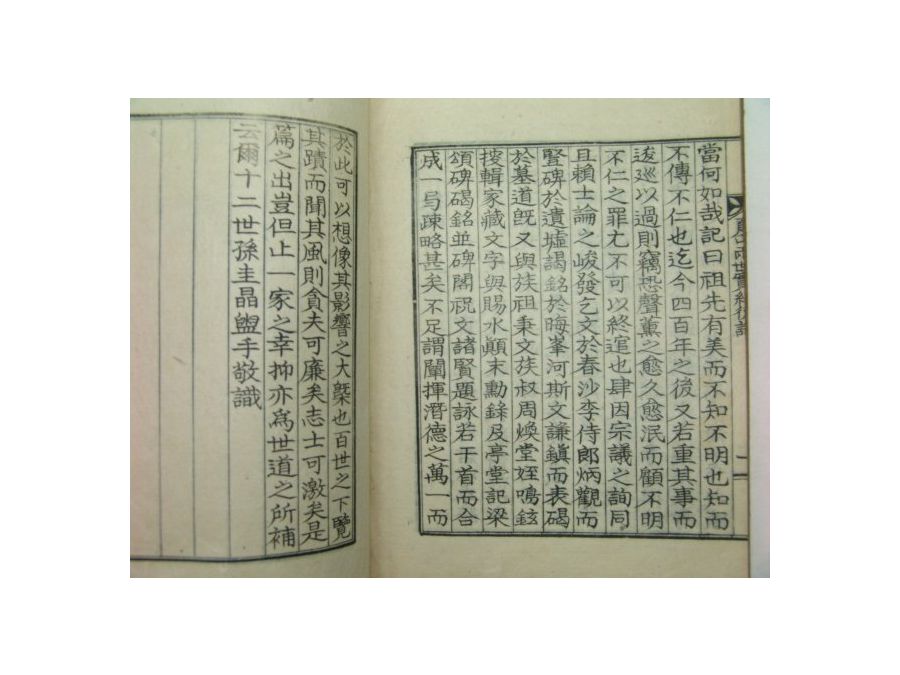 當何如哉記曰祖先有美而不知不明也知而
不傳不仁也迄今四百年之後又若重其事而
逡巡以過則竊恐聲薰之愈久愈泯而顧不明
不仁之罪尤不可以終逭也肆因宗議之詢同
且賴士論之峻發乞文於春沙李侍郎炳觀而
竪碑於遺墟謁銘於晦峯河斯文謙鎭而表碣
於墓道旣又與族祖秉文族叔周煥堂姪鳴鉉
授輯家藏文字與賜水顚末勳錄及亭堂記梁
頌碑碣銘並碑閣祝文諸賢題詠若干首而合
成一局疎略甚矣不足謂闡揮潛德之萬一而
於此可以想像其影響之大槩也百世之下覽
其蹟而聞其風則貪夫可廉矣志士可激矣是
篇之出豈但止一家之幸抑亦爲世道之所補
云爾十二世孫圭晶盥手敬識